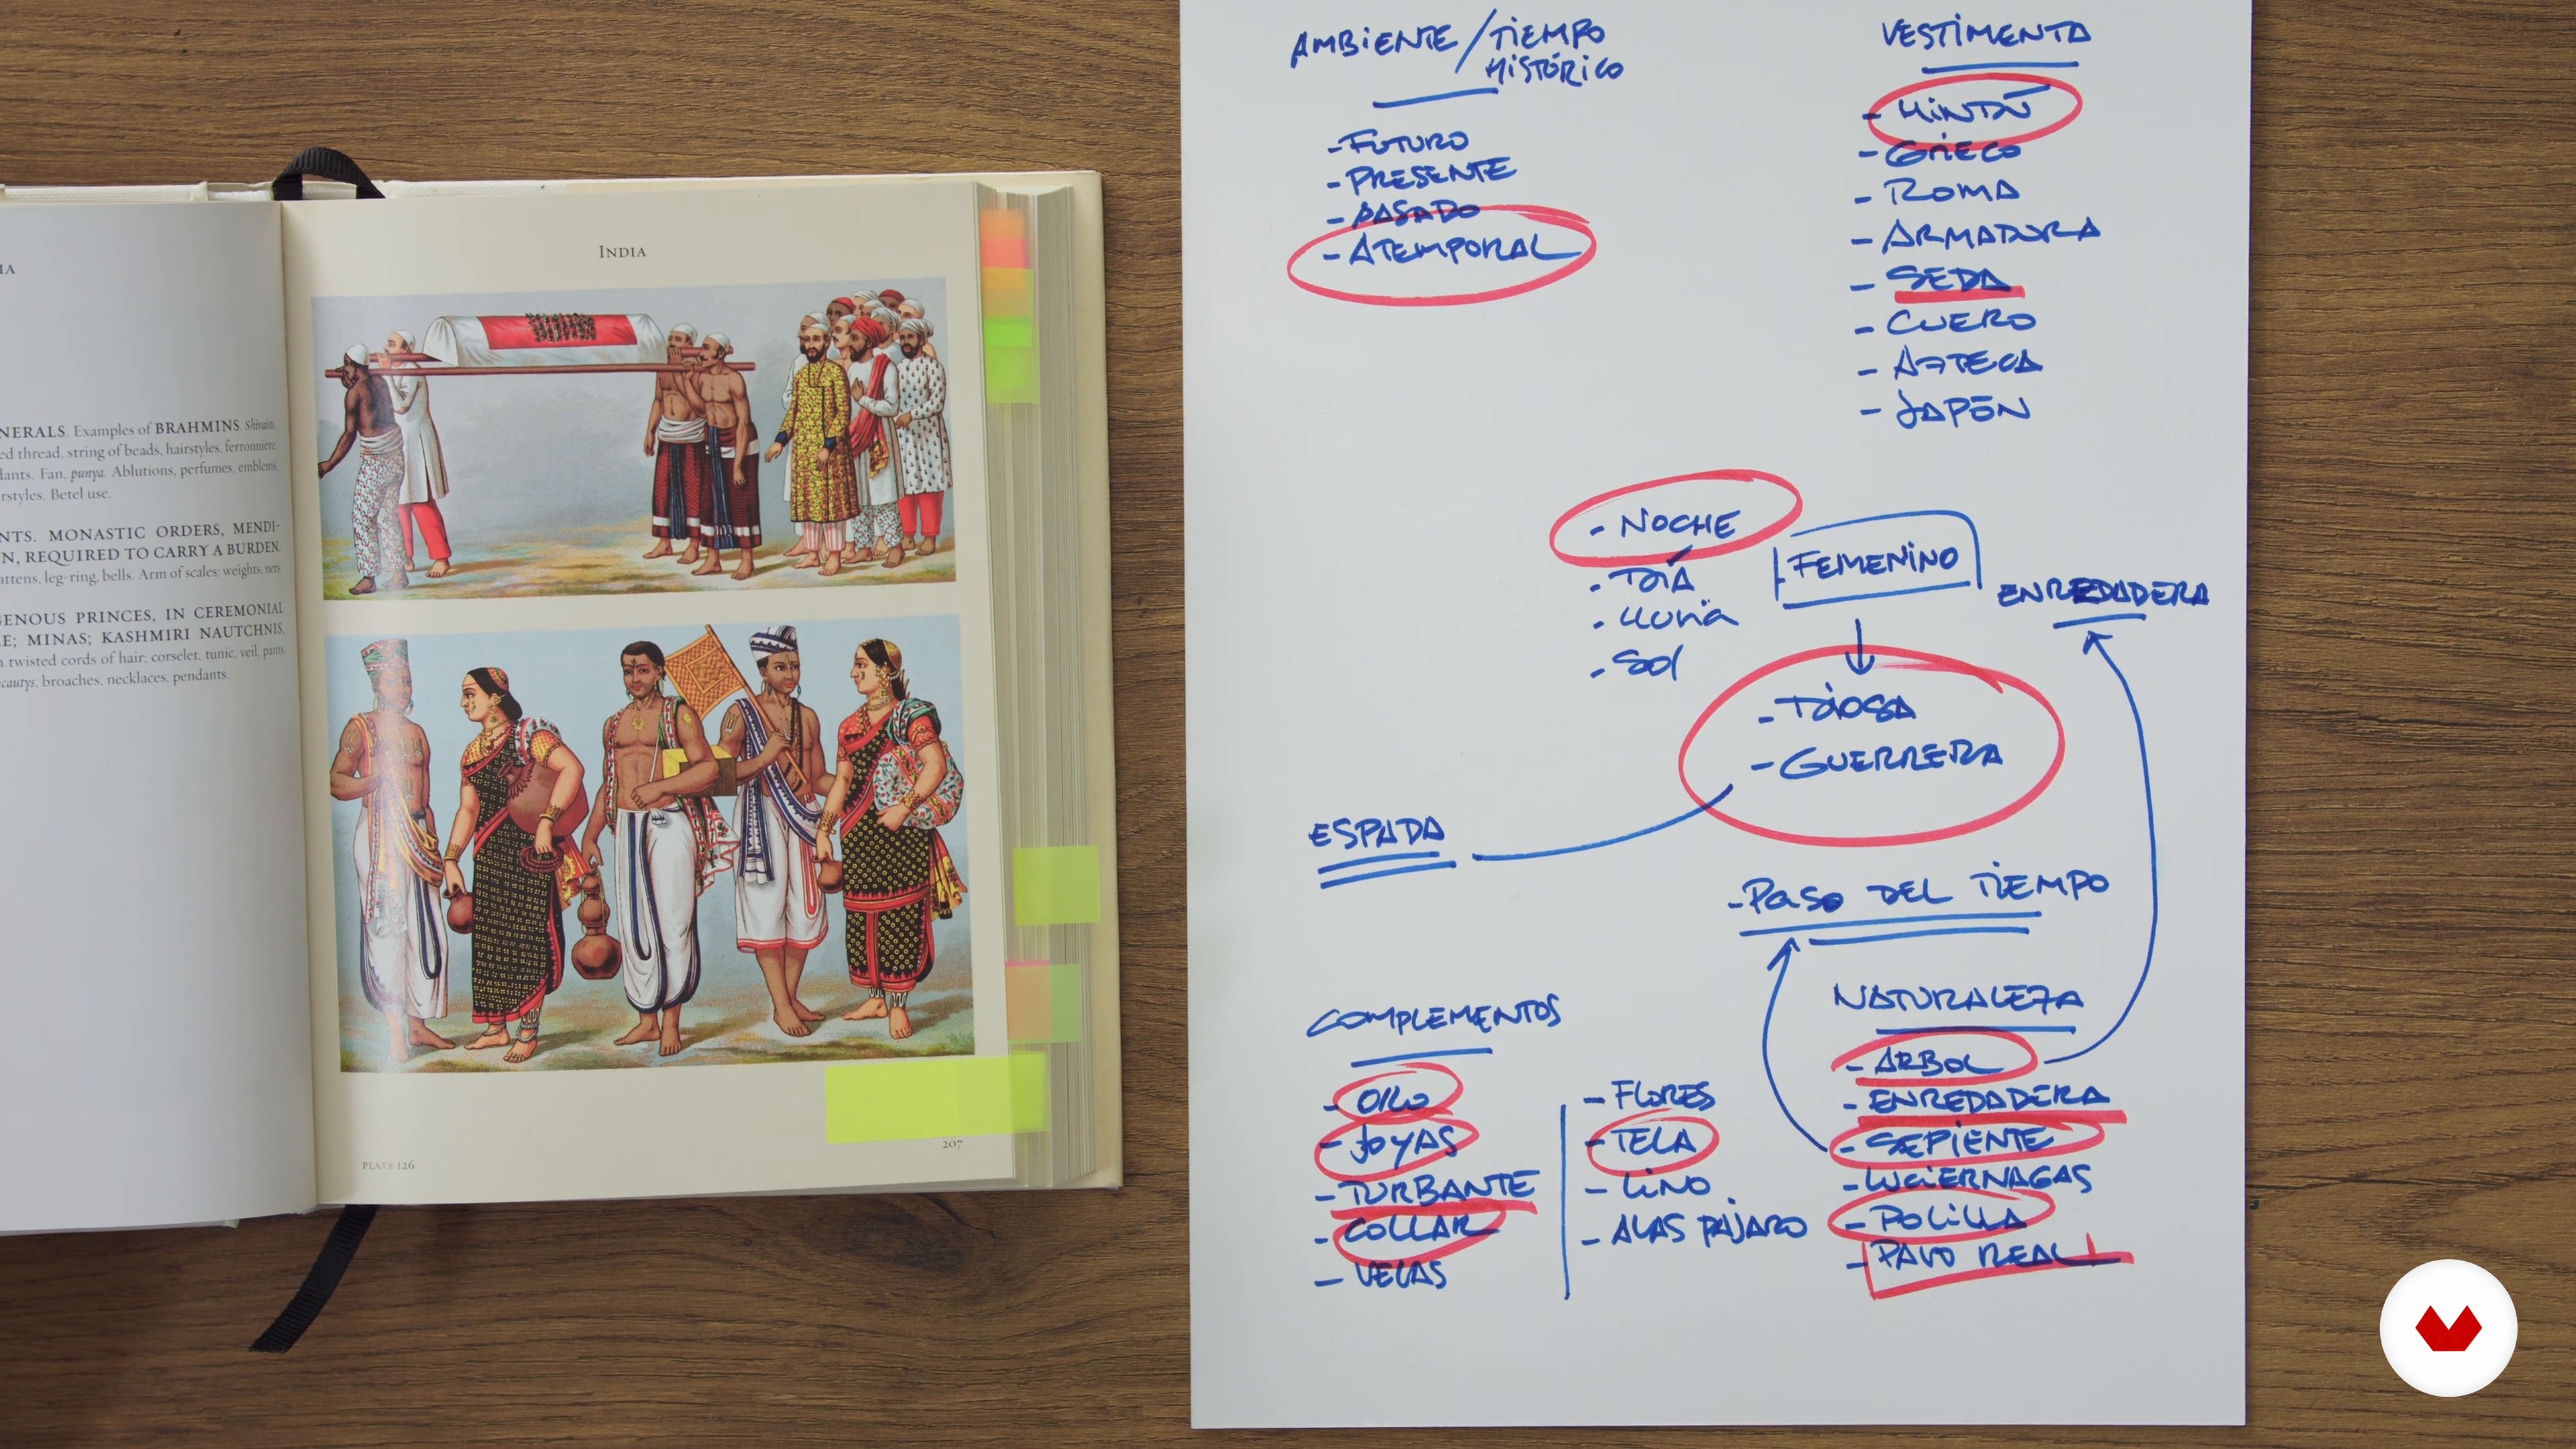 IA
NERALS. Examples of BRAHMINS. Shivaite,
ed thread, string of beads, hairstyles, ferronnière,
dants. Fan, punya. Ablutions, perfumes, emblems,
rstyles. Betel use.
NTS. MONASTIC ORDERS, MENDI-
N, REQUIRED TO CARRY A BURDEN.
attens, leg-ring, bells. Arm of scales; weights, nets.
GENOUS PRINCES, IN CEREMONIAL
E; MINAS; KASHMIRI NAUTCHNIS,
n twisted cords of hair; corselet, tunic, veil, pants
cautys, broaches, necklaces, pendants.
INDIA
PLATE 126
207
AMBIENTE / TIEMPO
HISTÓRICO
- FUTURO
- PRESENTE
- PASADO
- ATEMPORAL
VESTIMENTA
- HINDÚ
- GRIEGO
- ROMA
- ARMADURA
- SEDA
- CUERO
- AZTECA
- JAPÓN
- NOCHE
- DÍA
- LUNA
- SOL
FEMENINO
ENREDADERA
- DIOSA
- GUERRERA
ESPADA
- PASO DEL TIEMPO
COMPLEMENTOS
- ORO
- JOYAS
- TURBANTE
- COLLAR
- VELAS
- FLORES
- TELA
- LINO
- ALAS PÁJARO
NATURALEZA
- ARBOL
- ENREDADERA
- SEPIENTE
- LUCIERNAGAS
- POLILLA
- PAVO REAL